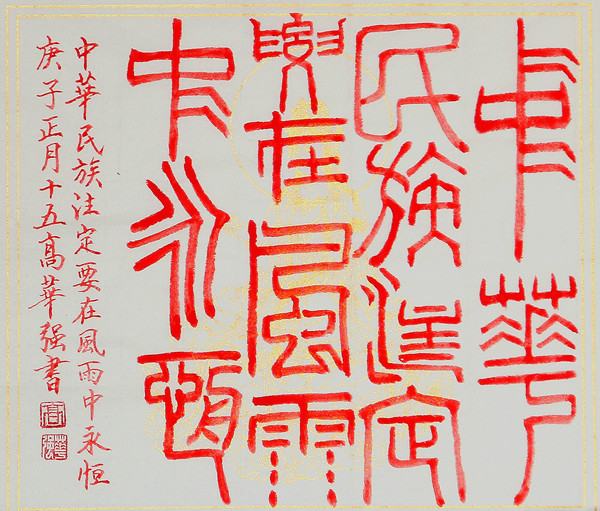 中華
民族注定
要在風雨
中永恒
中華民族注定要在風雨中永恒
庚子正月十五高華强書
高
華强